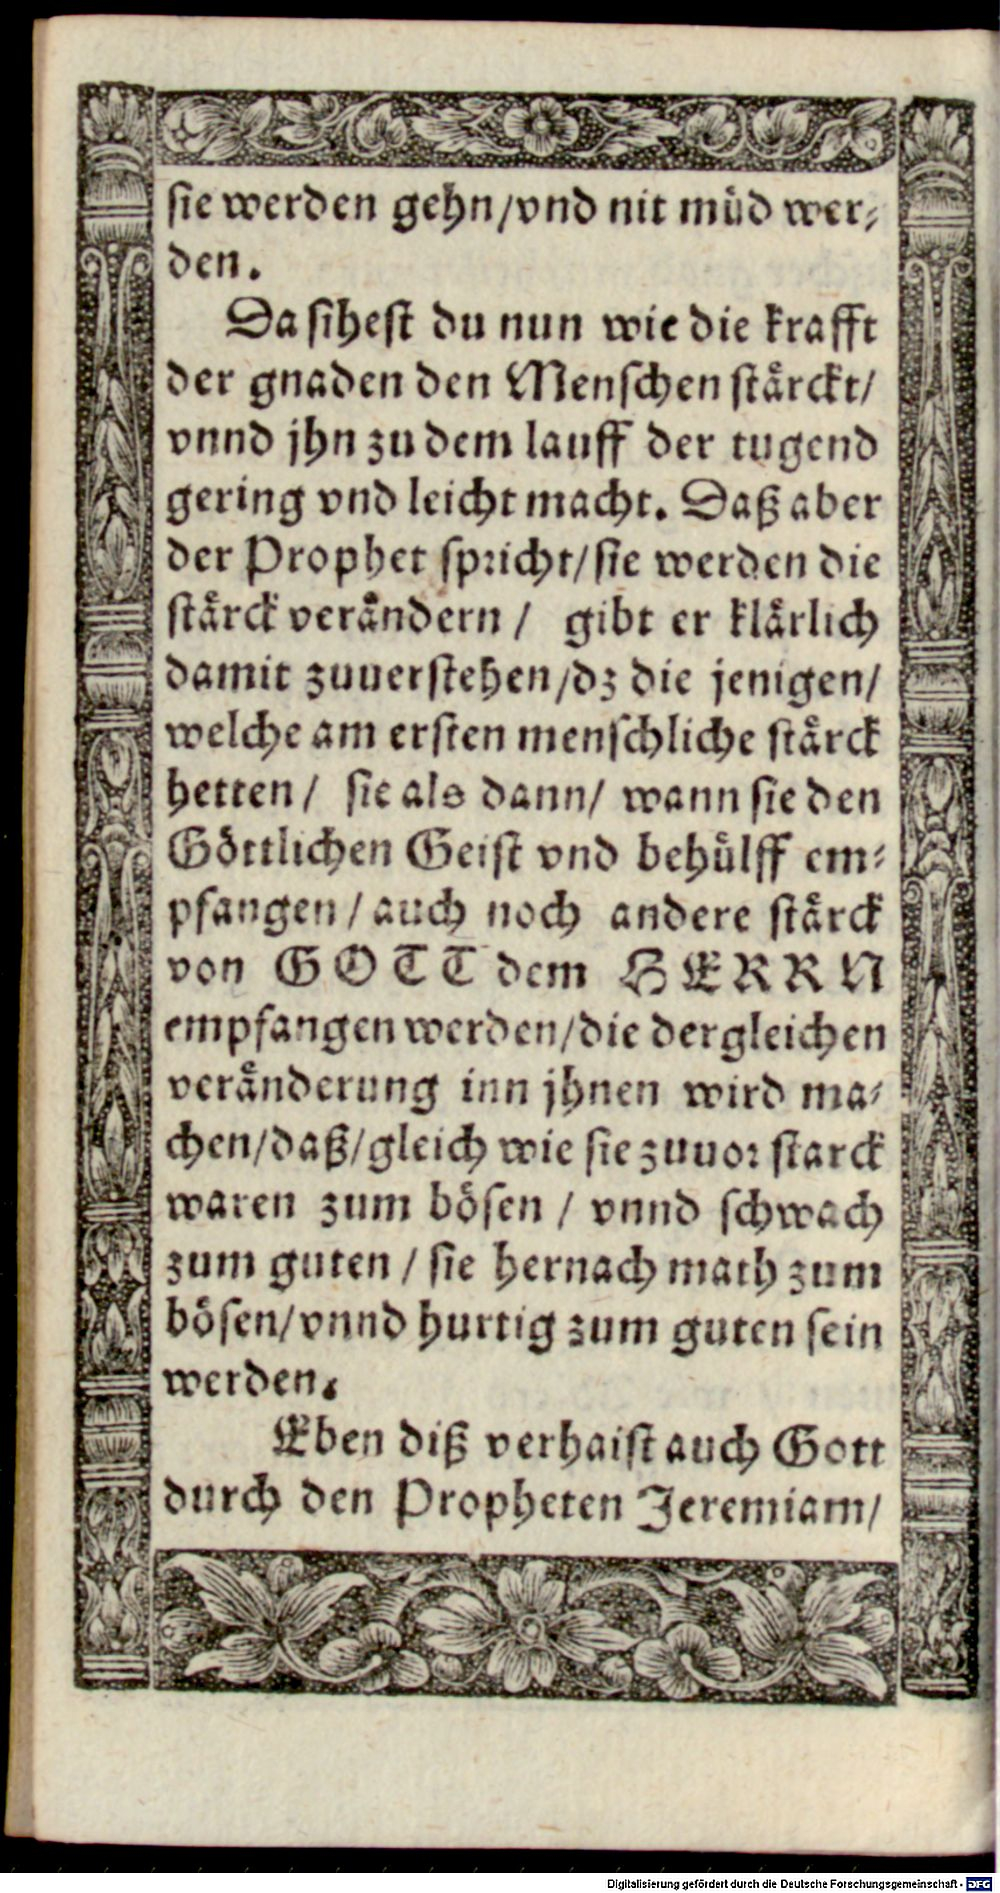 sie werden gehn/vnd nit müd wer⸗
den.
Da sihest du nun wie die krafft
der gnaden den Menschen stärckt/
vnnd jhn zu dem lauff der tugend
gering vnd leicht macht. Daß aber
der Prophet spricht/sie werden die
stärck verändern / gibt er klärlich
damit zuuerstehen/dz die jenigen/
welche am ersten menschliche stärck
hetten/ sie als dann/ wann sie den
Göttlichen Geist vnd behülff em⸗
pfangen / auch noch andere stärck
von GOTT dem HERRN
empfangen werden/die dergleichen
veränderung inn jhnen wird ma⸗
chen/daß/gleich wie sie zuuor starck
waren zum bösen / vnnd schwach
zum guten / sie hernach math zum
bösen/vnnd hurtig zum guten sein
werden.
Eben diß verhaist auch Gott
durch den Propheten Jeremiam/
Digitalisierung gefördert durch die Deutsche Forschungsgemeinschaft - DFG